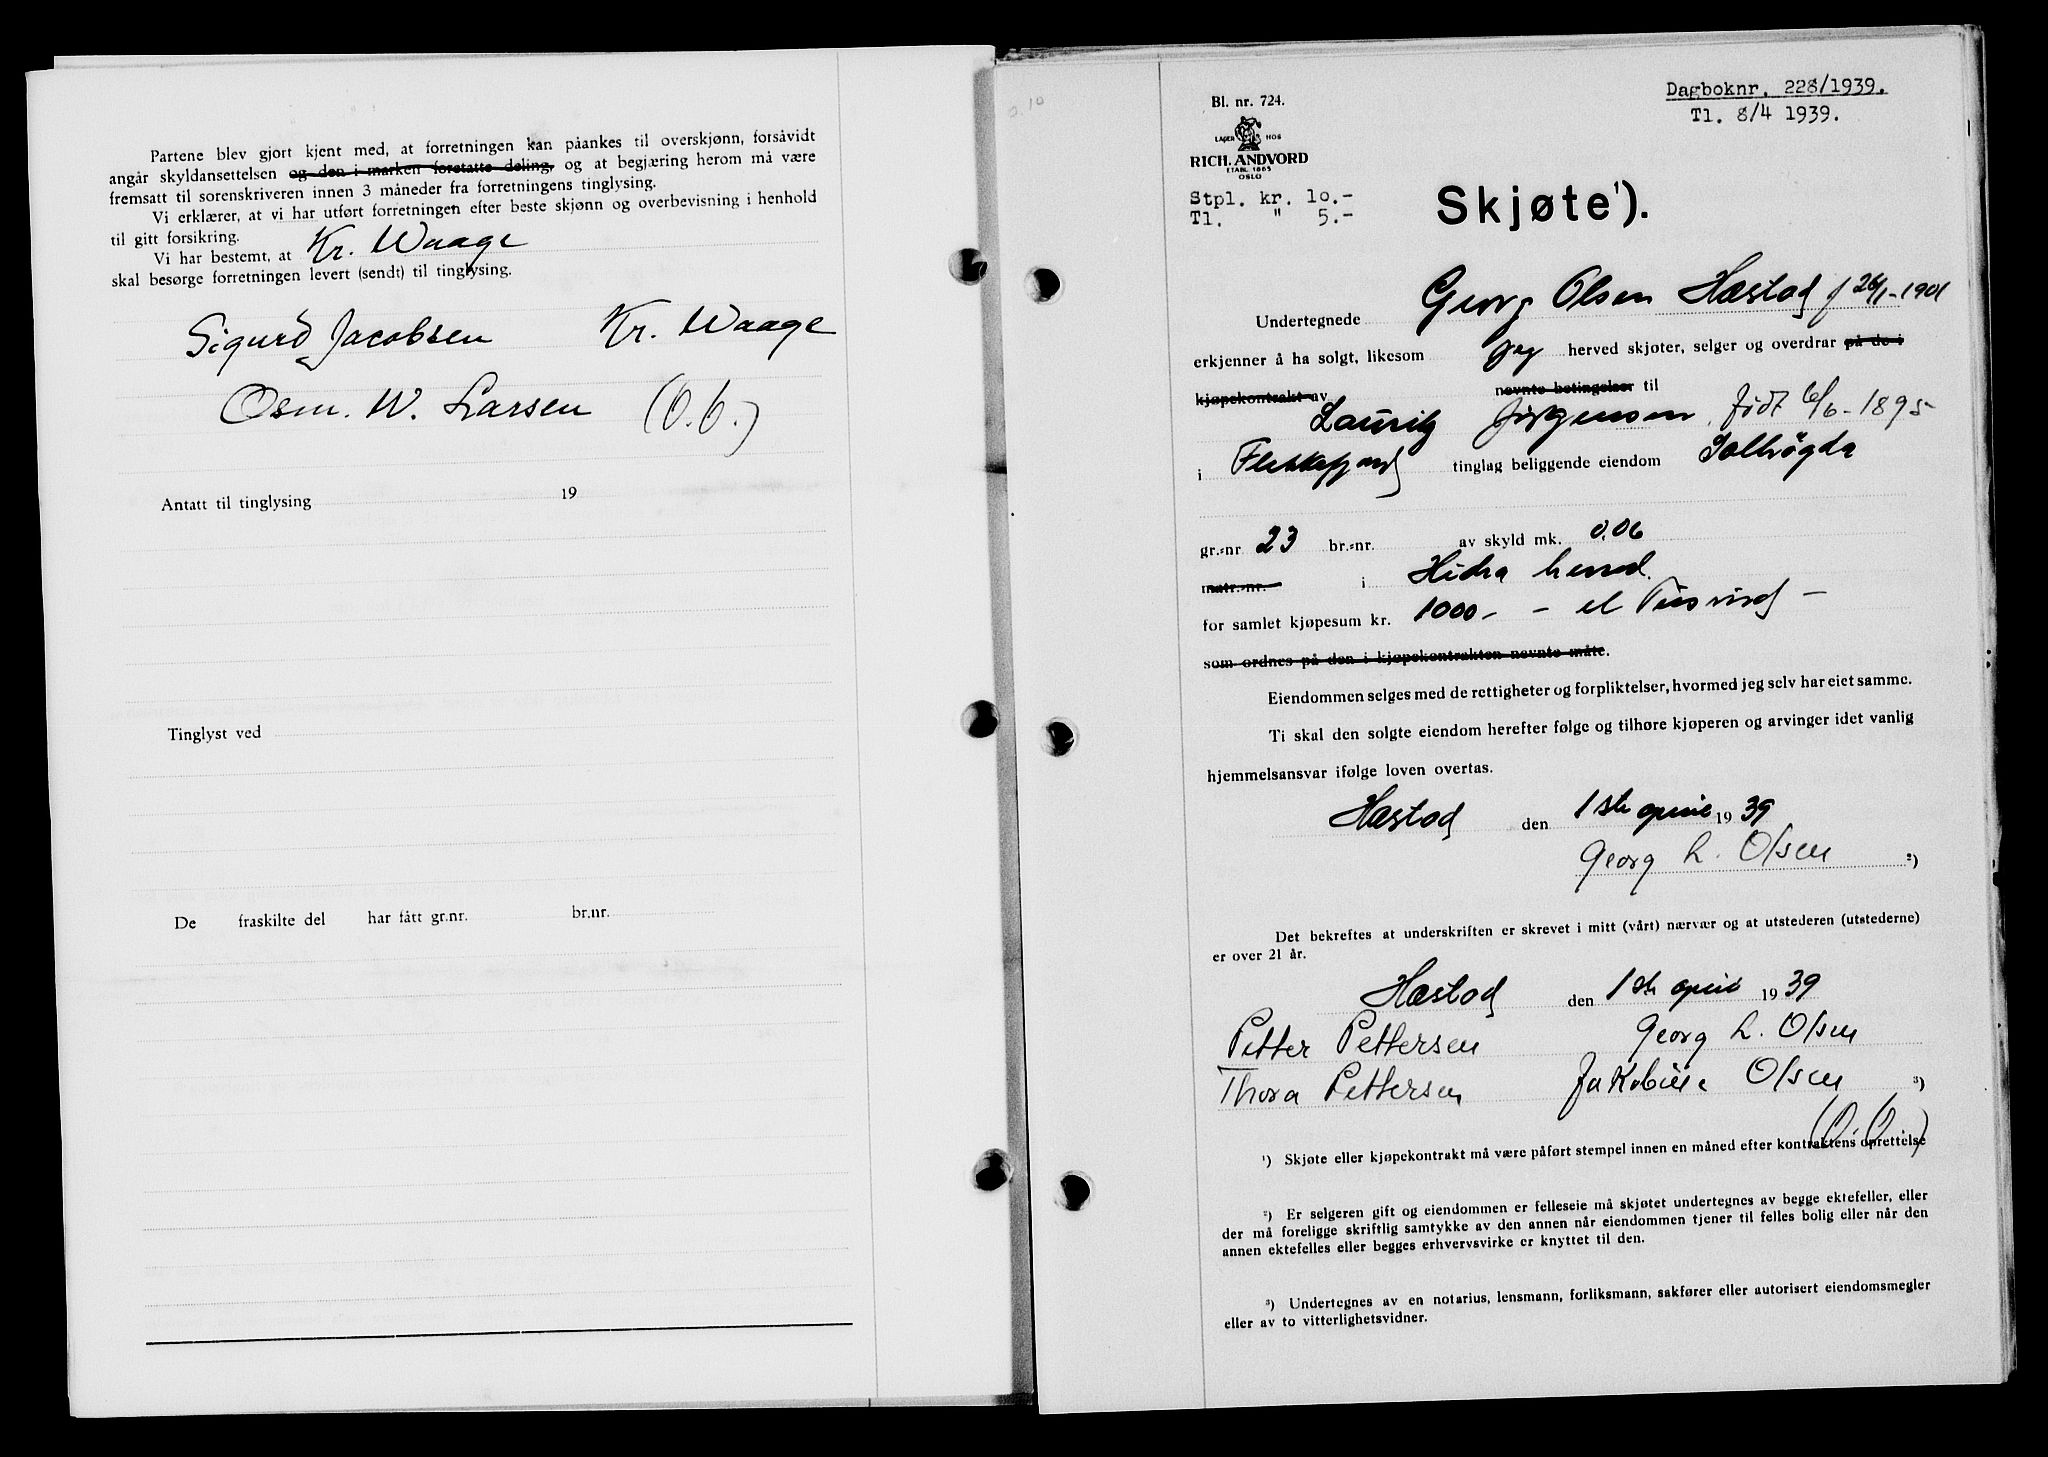 Partene blev gjort kjent med, at forretningen kan påankes til overskjønn, forsåvidt
angår skyldansettelsen og den i marken foretatte deling, og at begjæring herom må være
fremsatt til sorenskriveren innen 3 måneder fra forretningens tinglysing.
Vi erklærer, at vi har utført forretningen efter beste skjønn og overbevisning i henhold
til gitt forsikring.
Vi har bestemt, at Kr. Waage
skal besørge forretningen levert (sendt) til tinglysing.
Sigurd Jacobsen Kr. Waage
Osm. W. Larsen (O.b.)
Antatt til tinglysing 19
Tinglyst ved
De fraskilte del har fått gr.nr. br.nr.
Dagboknr. 228/1939.
Tl. 8/4 1939.
Bl. nr. 724.
LAGER HOS
RICH. ANDVORD
ETABL 1865
OSLO
Stpl. kr. 10.-
Tl. " 5.-
Skjøte¹).
Undertegnede Georg Olsen Hæstad f 26/1-1901
erkjenner å ha solgt, likesom jeg herved skjøter, selger og overdrar på de i
kjøpekontrakt av nevnte betingelser til
Lauritz Jørgensen, født 6/6-1895
i Flekkefjord tinglag beliggende eiendom Solhøgda
gr.-nr. 23 br.-nr. av skyld mk. 0,06
matr.-nr. i Hidra herred.
for samlet kjøpesum kr. 1000,- - et Tusind -
som ordnes på den i kjøpekontrakten nevnte måte.
Eiendommen selges med de rettigheter og forpliktelser, hvormed jeg selv har eiet samme.
Ti skal den solgte eiendom herefter følge og tilhøre kjøperen og arvinger idet vanlig
hjemmelsansvar ifølge loven overtas.
Hæstad den 1ste april 1939
Georg L. Olsen ²)
Det bekreftes at underskriften er skrevet i mitt (vårt) nærvær og at utstederen (utstederne)
er over 21 år.
Hæstad den 1ste april 1939
Petter Pettersen Georg L. Olsen
Thora Pettersen Jakobine Olsen ³)
(O.O.)
¹) Skjøte eller kjøpekontrakt må være påført stempel innen en måned efter kontraktens oprettelse
²) Er selgeren gift og eiendommen er felleseie må skjøtet undertegnes av begge ektefeller, eller
der må foreligge skriftlig samtykke av den annen når eiendommen tjener til felles bolig eller når den
annen ektefelles eller begges erhvervsvirke er knyttet til den.
³) Undertegnes av en notarius, lensmann, forliksmann, sakfører eller autorisert eiendomsmegler
eller av to vitterlighetsvidner.